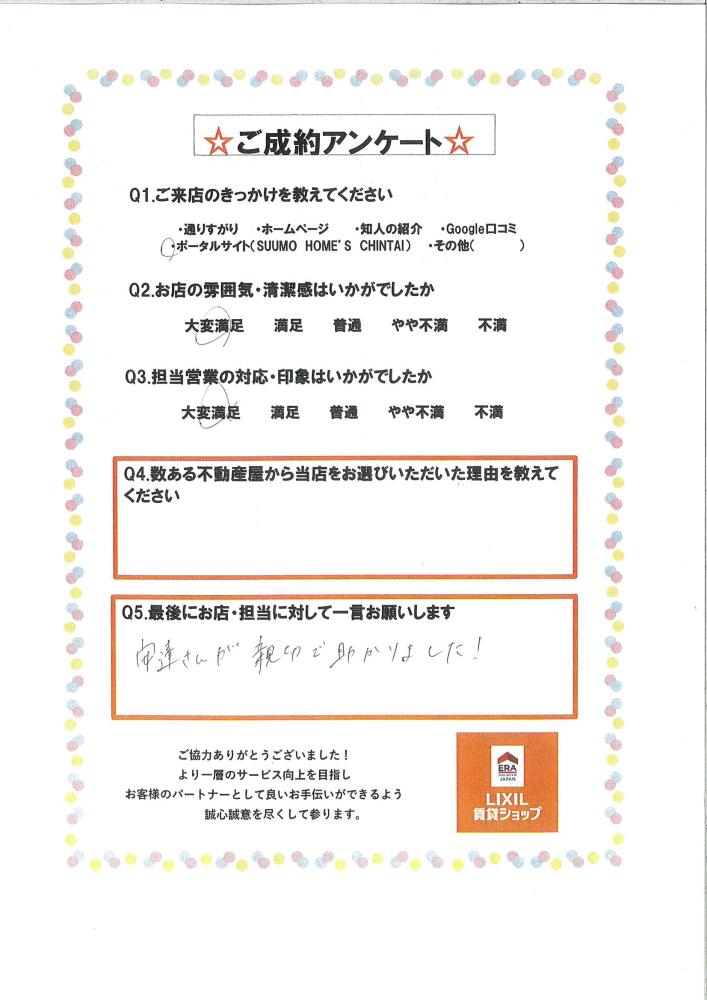 ☆ご成約アンケート☆
Q1.ご来店のきっかけを教えてください
・通りすがり ・ホームページ ・知人の紹介 ・Google口コミ
・ポータルサイト(SUUMO HOME'S CHINTAI) ・その他( )
Q2.お店の雰囲気・清潔感はいかがでしたか
大変満足 満足 普通 やや不満 不満
Q3.担当営業の対応・印象はいかがでしたか
大変満足 満足 普通 やや不満 不満
Q4.数ある不動産屋から当店をお選びいただいた理由を教えて
ください
Q5.最後にお店・担当に対して一言お願いします
安達さんが親切で助かりました!
ご協力ありがとうございました!
より一層のサービス向上を目指し
お客様のパートナーとして良いお手伝いができるよう
誠心誠意を尽くして参ります。
ERA
JAPAN
LIXIL
賃貸ショップ